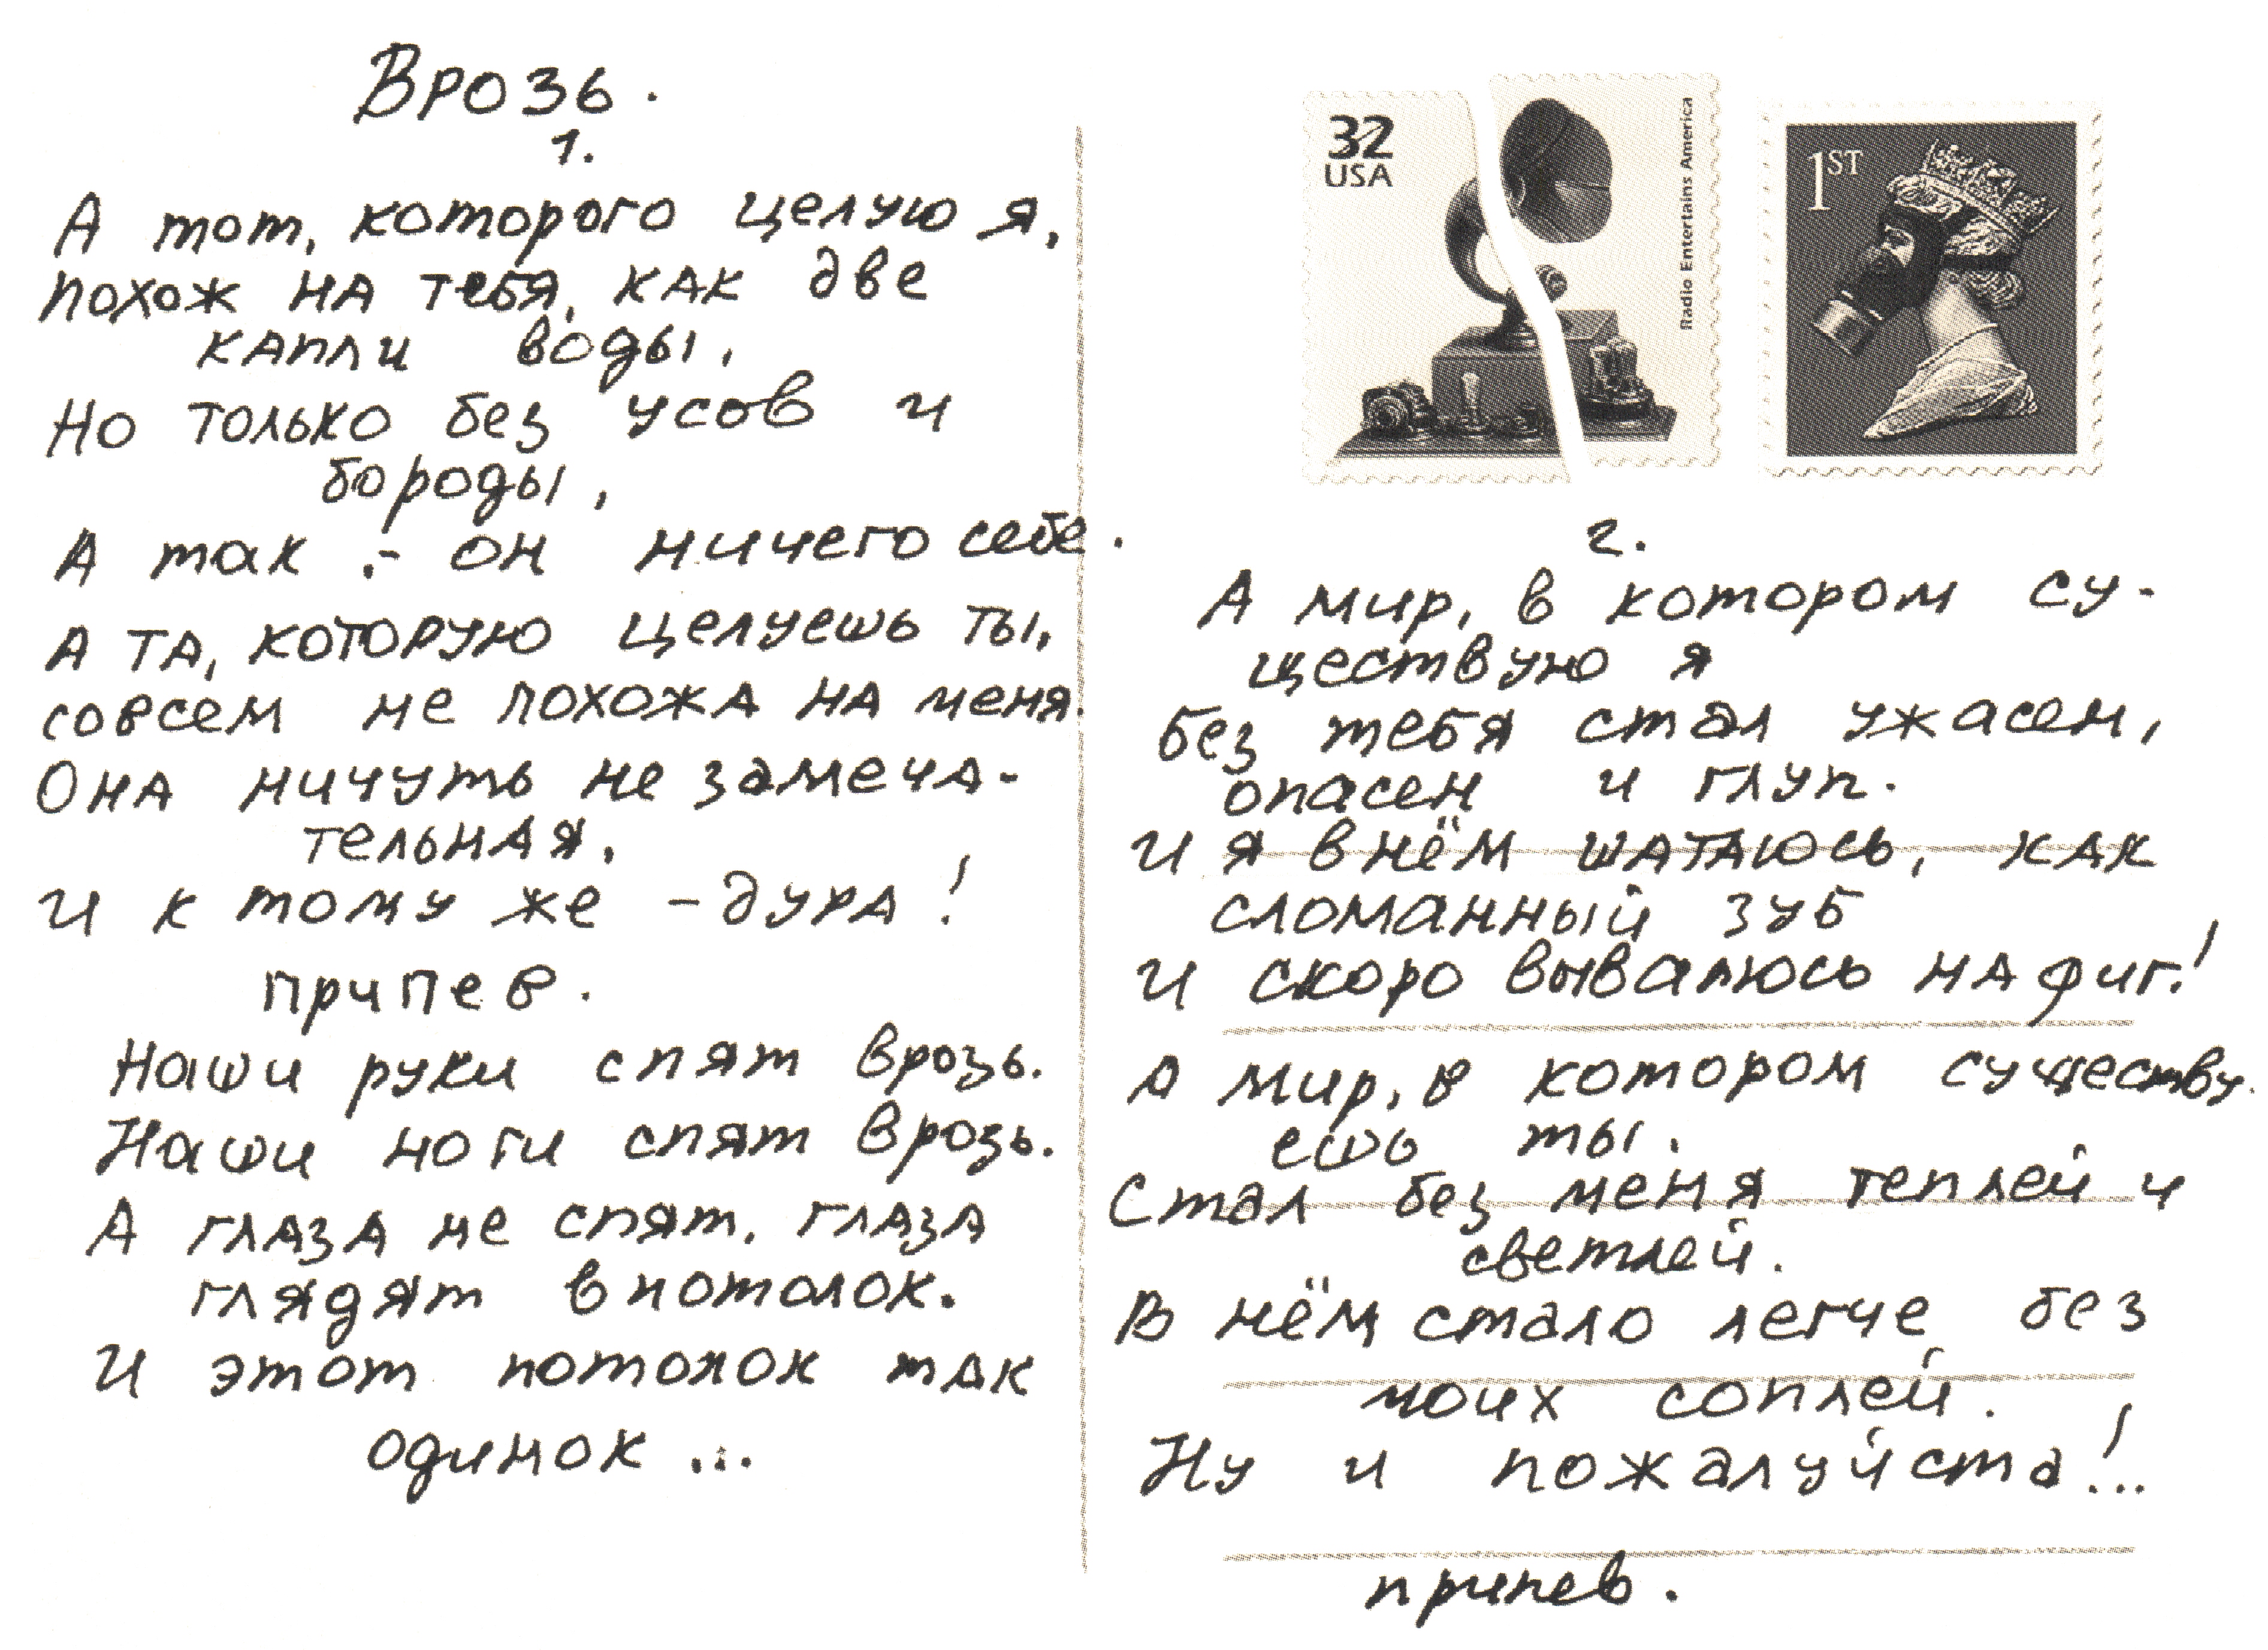 Врозь.
1.
А тот, которого целую я,
похож на тебя, как две
капли воды,
Но только без усов и
бороды,
А так - он ничего себе.
А та, которую целуешь ты,
совсем не похожа на меня.
Она ничуть не замеча-
тельная,
и к тому же - дура!
припев.
Наши руки спят врозь.
Наши ноги спят врозь.
А глаза не спят, глаза
глядят в потолок.
И этот потолок так
одинок...
32
USA
Radio Entertains America
1ST
2.
А мир, в котором су-
ществую я
без тебя стал ужасен,
опасен и глуп.
и я в нём шатаюсь, как
сломанный зуб
и скоро вывалюсь на фиг!
А мир, в котором существу-
ешь ты.
Стал без меня теплей и
светлей.
В нём стало легче без
моих соплей.
Ну и пожалуйста!..
припев.